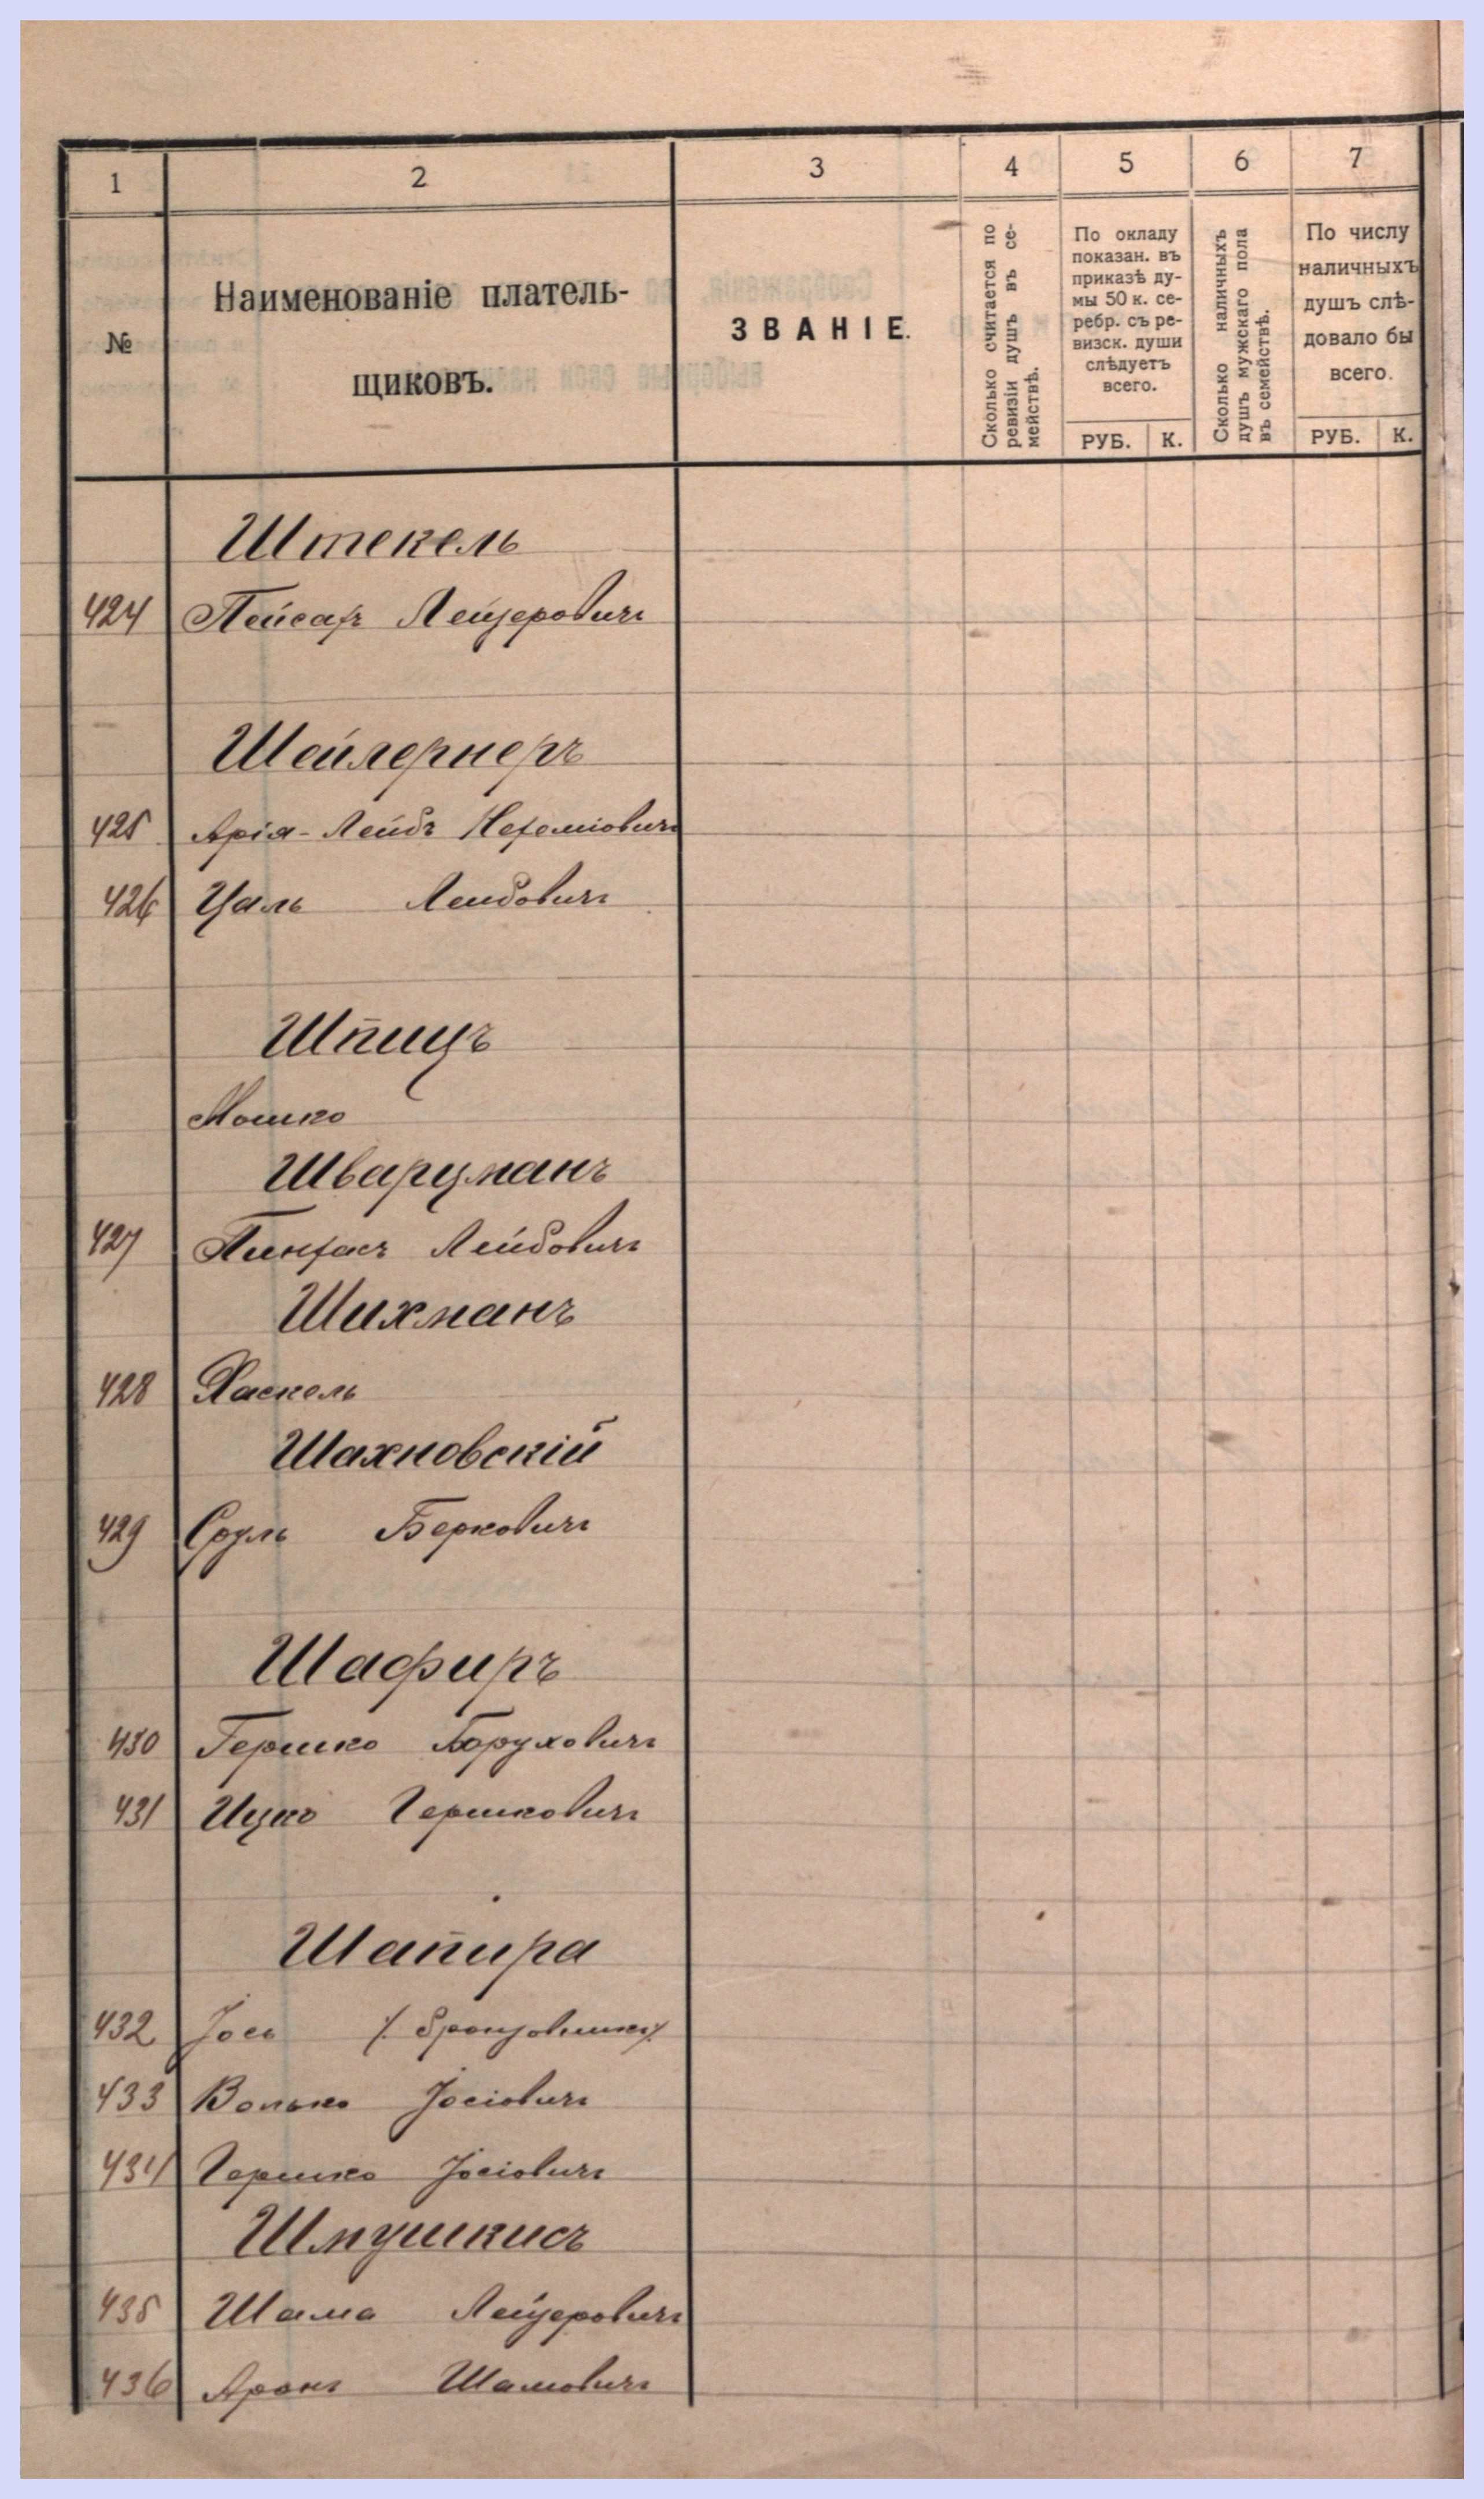 1 2 3 4 5 6 7
№
Наименованіе платель-
щиковъ.
ЗВАНІЕ.
Сколько считается по
ревизіи душъ въ се-
мействѣ.
По окладу
показан. въ
приказѣ ду-
мы 50 к. се-
ребр. съ ре-
визск. души
слѣдуетъ
всего.
РУБ. К.
Сколько наличныхъ
душъ мужскаго пола
въ семействѣ.
По числу
наличныхъ
душъ слѣ-
довало бы
всего.
РУБ. К.
Штекель
424 Пейсахъ Лейзеровичъ
Шейлернеръ
425 Арія-Лейбъ Нехеміовичъ
426 Цаль Лейбовичъ
Шпицъ
Мошко
Шварцманъ
427 Пинхасъ Лейбовичъ
Шихманъ
428 Хаскель
Шахновскій
429 Сруль Берковичъ
Шафиръ
430 Гершко Боруховичъ
431 Ицко Гершковичъ
Шапира
432 Іось
433 Волько Іосіовичъ
434 Гершко Іосіовичъ
Шмушкисъ
435 Шама Лейзеровичъ
436 Аронъ Шамовичъ